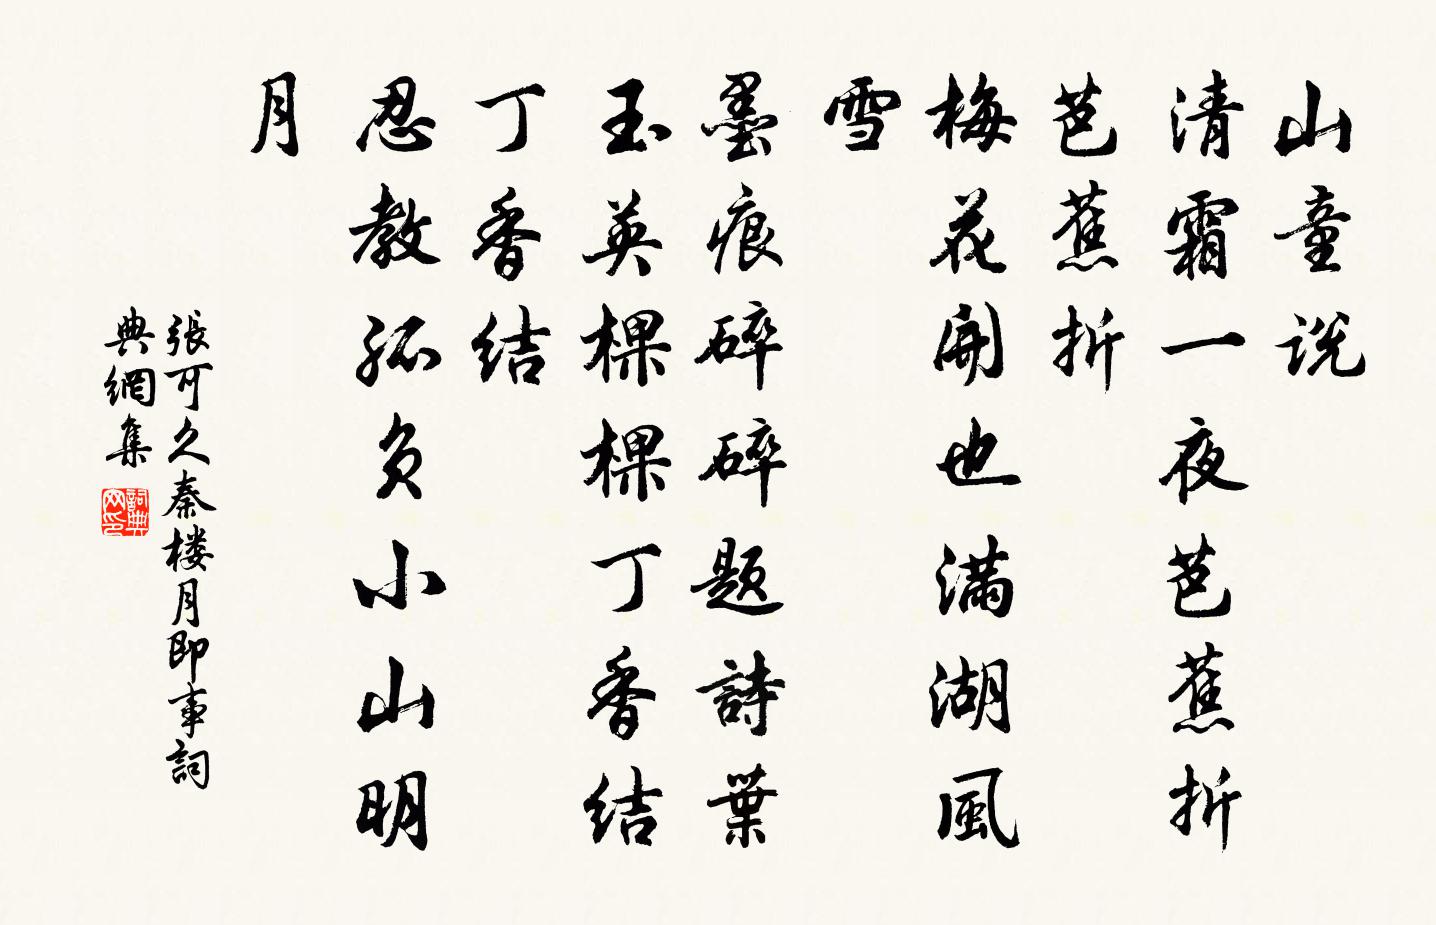 山童说
清霜一夜芭蕉折
芭蕉折
梅花開也满湖風
雪
墨痕碎碎题詩葉
玉英棵棵丁香结
丁香结
忍教孤负小山明
月
張可久秦楼月即事詞
典網集
詞典
网印